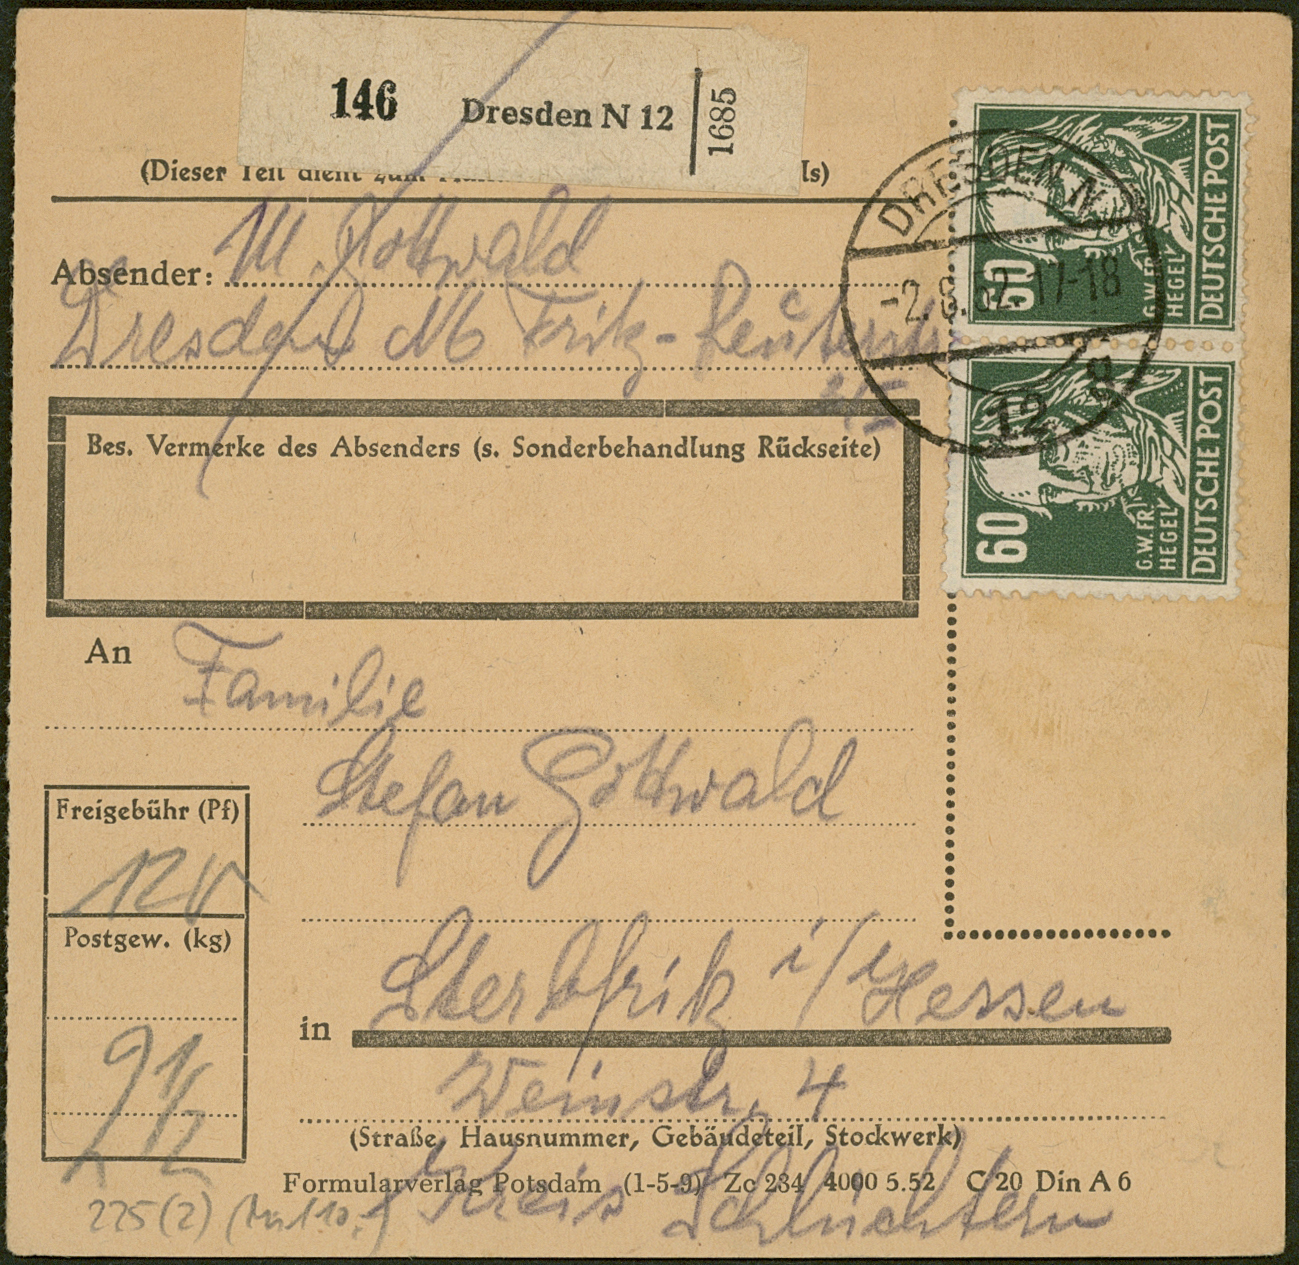 146 Dresden N 12 1685
(Dieser Teil dient zum ls)
Absender: M. Gottwald
Dresden N6 Fritz-Reuterstr
Bes. Vermerke des Absenders (s. Sonderbehandlung Rückseite)
DRESDEN N
-2.8.52.17-18
12 g
60
G.W.FR.
HEGEL
DEUTSCHE POST
60
G.W.FR.
HEGEL
DEUTSCHE POST
An Familie
Stefan Gottwald
Freigebühr (Pf)
120
Postgew. (kg)
9 1/2
in Sterbfritz i/Hessen
Weinstr. 4
(Straße, Hausnummer, Gebäudeteil, Stockwerk)
Formularverlag Potsdam (1-5-9) Zc 234 4000 5.52 C 20 Din A 6
Kreis Schlüchtern
225(2)